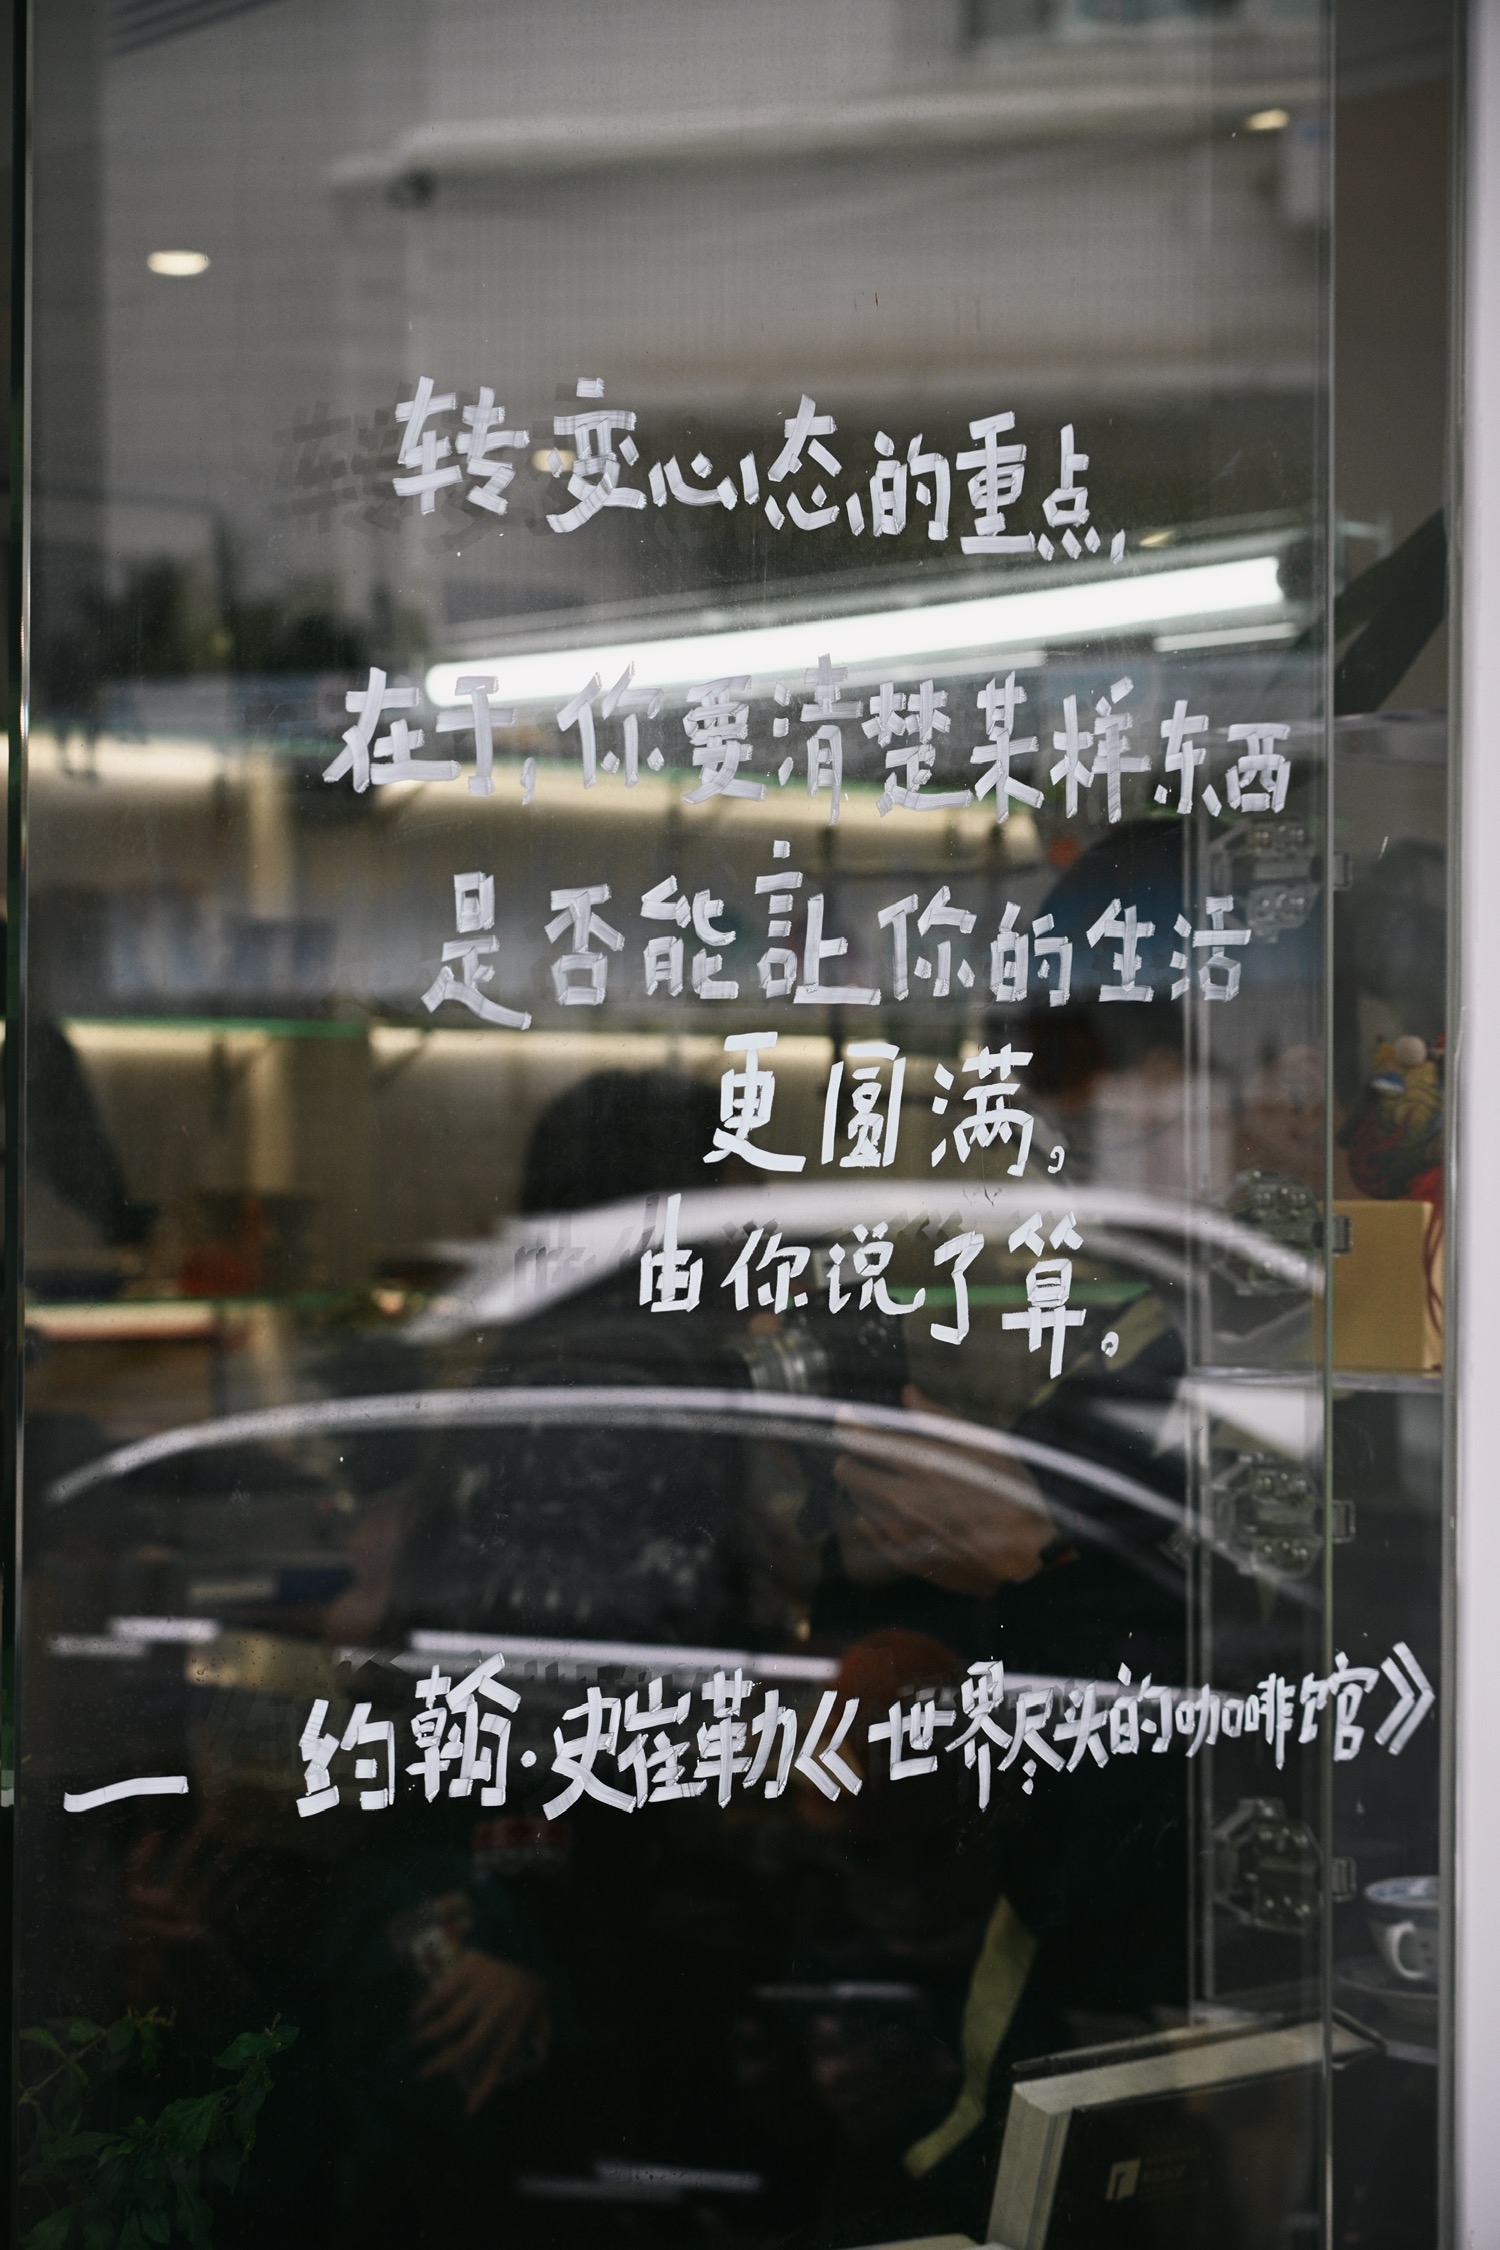 转变心态的重点,
在于,你要清楚某样东西
是否能让你的生活
更圆满。
由你说了算。
— 约翰·史崔勒《世界尽头的咖啡馆》